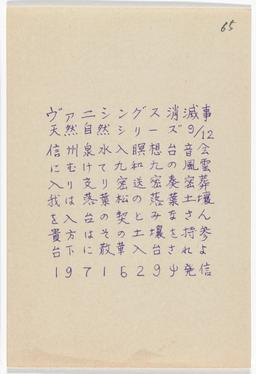 65
ヴァニシングス消滅事
天然自然シリーズ9/12
信州泉水入瞑想台音会
にむけて九和九の風雲
入り支り密送密奏密葬
我は落葉松の落葉土壌
を入台の契とみなさん
貴方はその土壌を持参
台下に散華入台されよ
1971629ψ発信